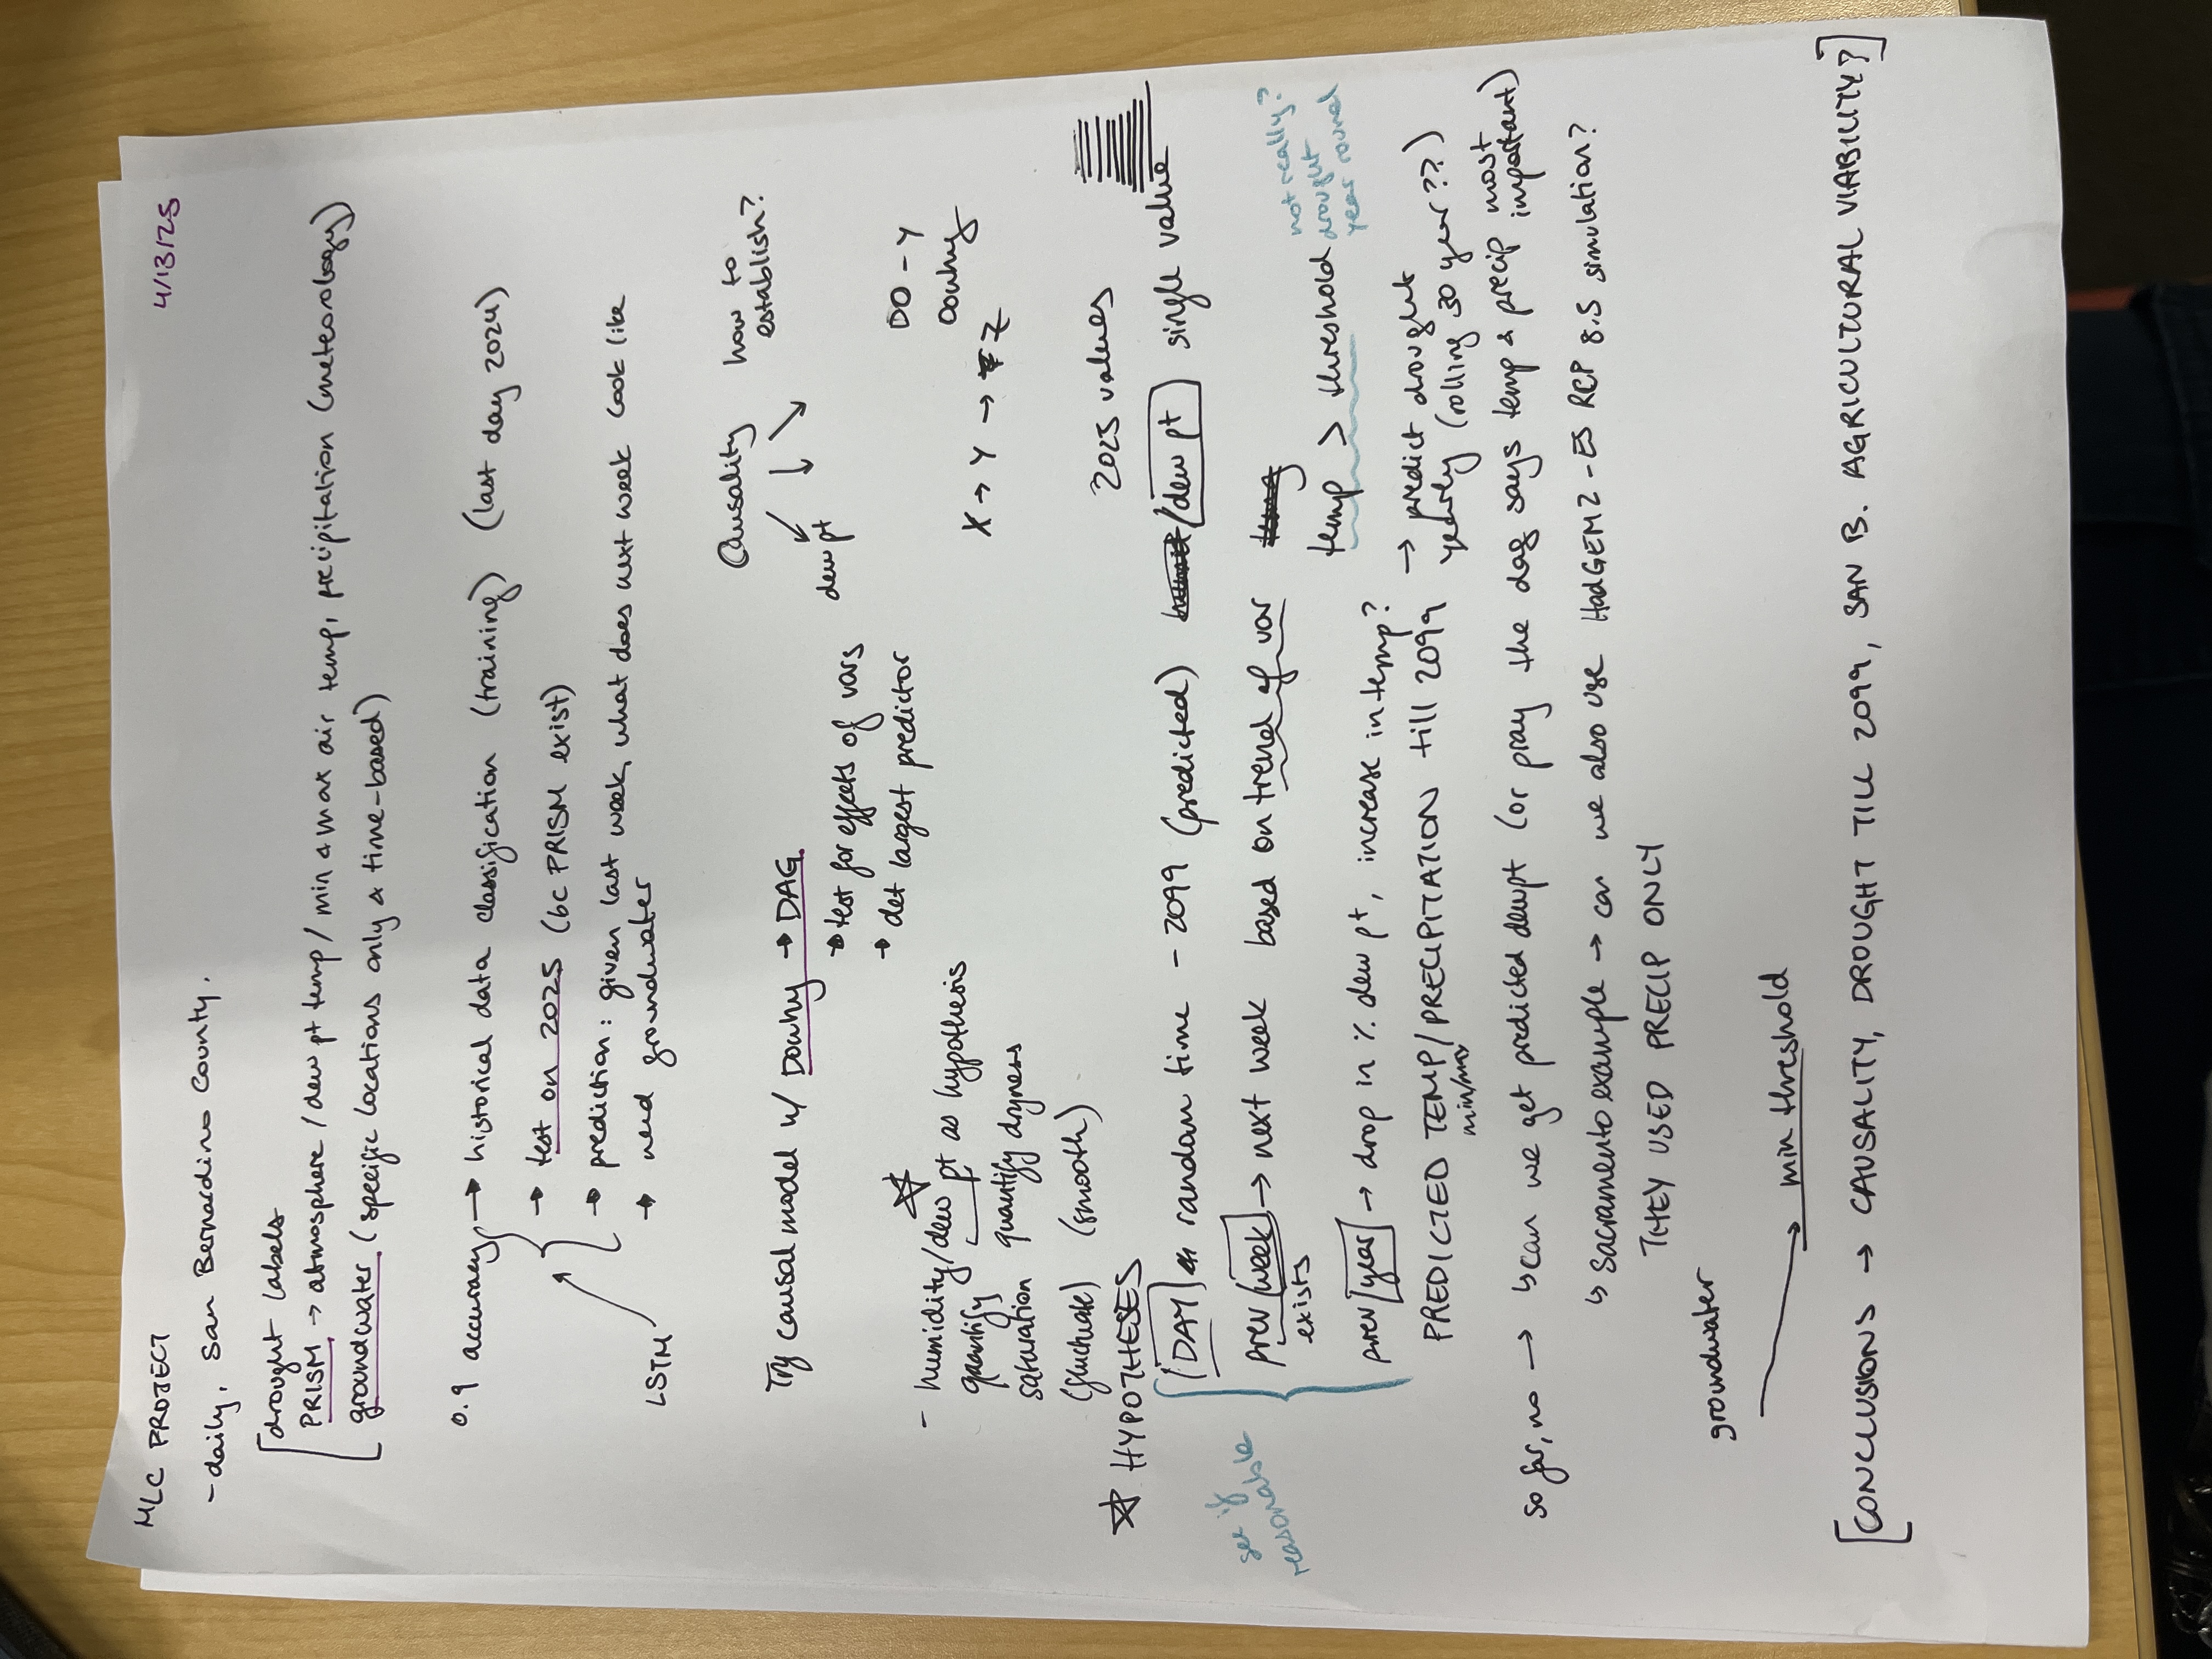 MLC PROJECT
4/13/25
- daily, San Bernardino County.
drought labels
PRISM → atmosphere / dew pt temp / min & max air temp, precipitation (meteorology)
groundwater (specific locations only & time-based)
0.9 accuracy → historical data classification (training) (last day 2024)
→ test on 2025 (bc PRISM exist)
→ prediction: given last week, what does next week look like
→ need groundwater
LSTM
Causality how to
establish?
dew pt
Try causal model w/ Dowhy → DAG
→ test for effects of vars
→ det largest predictor
DO - Y
Dowhy
X → Y → Z
- humidity/dew pt as hypothesis
quantify
saturation quantify dryness
(fluctuate) (smooth)
2025 values
HYPOTHESES
DAY random time - 2099 (predicted) /dew pt single value
prev week → next week based on trend of var
exists
see if
reasonable
temp > threshold
not really?
drought
year round
prev year → drop in % dew pt, increase in temp?
PREDICTED TEMP/PRECIPITATION till 2099 → predict drought
min/max
yearly (rolling 30 year??)
so far, no → ↳ can we get predicted dewpt (or pray the dag says temp & precip most
important)
↳ Sacramento example → can we also use HadGEM2-ES RCP 8.5 simulation?
THEY USED PRECIP ONLY
groundwater
→ min threshold
[CONCLUSIONS → CAUSALITY, DROUGHT TILL 2099, SAN B. AGRICULTURAL VIABILITY?]